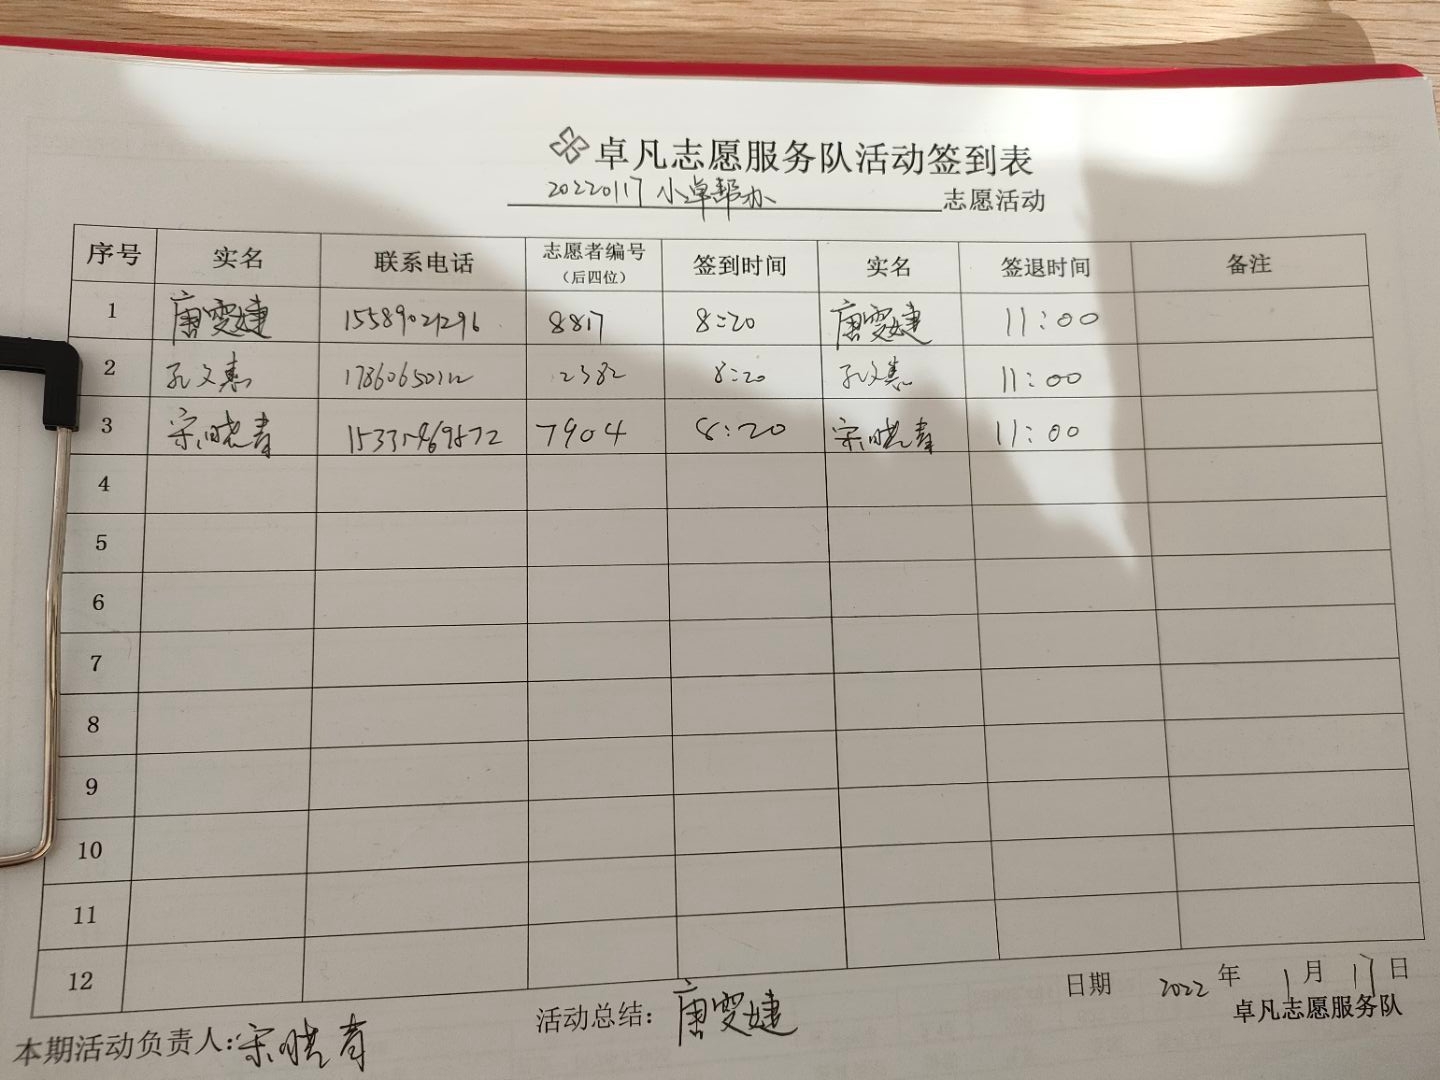 卓凡志愿服务队活动签到表
20220117 小卓帮办 志愿活动
序号 实名 联系电话 志愿者编号（后四位） 签到时间 实名 签退时间 备注
1 唐雯婕 15589021296 8817 8:20 唐雯婕 11:00
2 孔文惠 2382 8:20 孔文惠 11:00
3 宋晓青 7904 8:20 宋晓青 11:00
4
5
6
7
8
9
10
11
12
日期 2022 年 1 月 17 日
卓凡志愿服务队
本期活动负责人: 宋晓青 活动总结: 唐雯婕